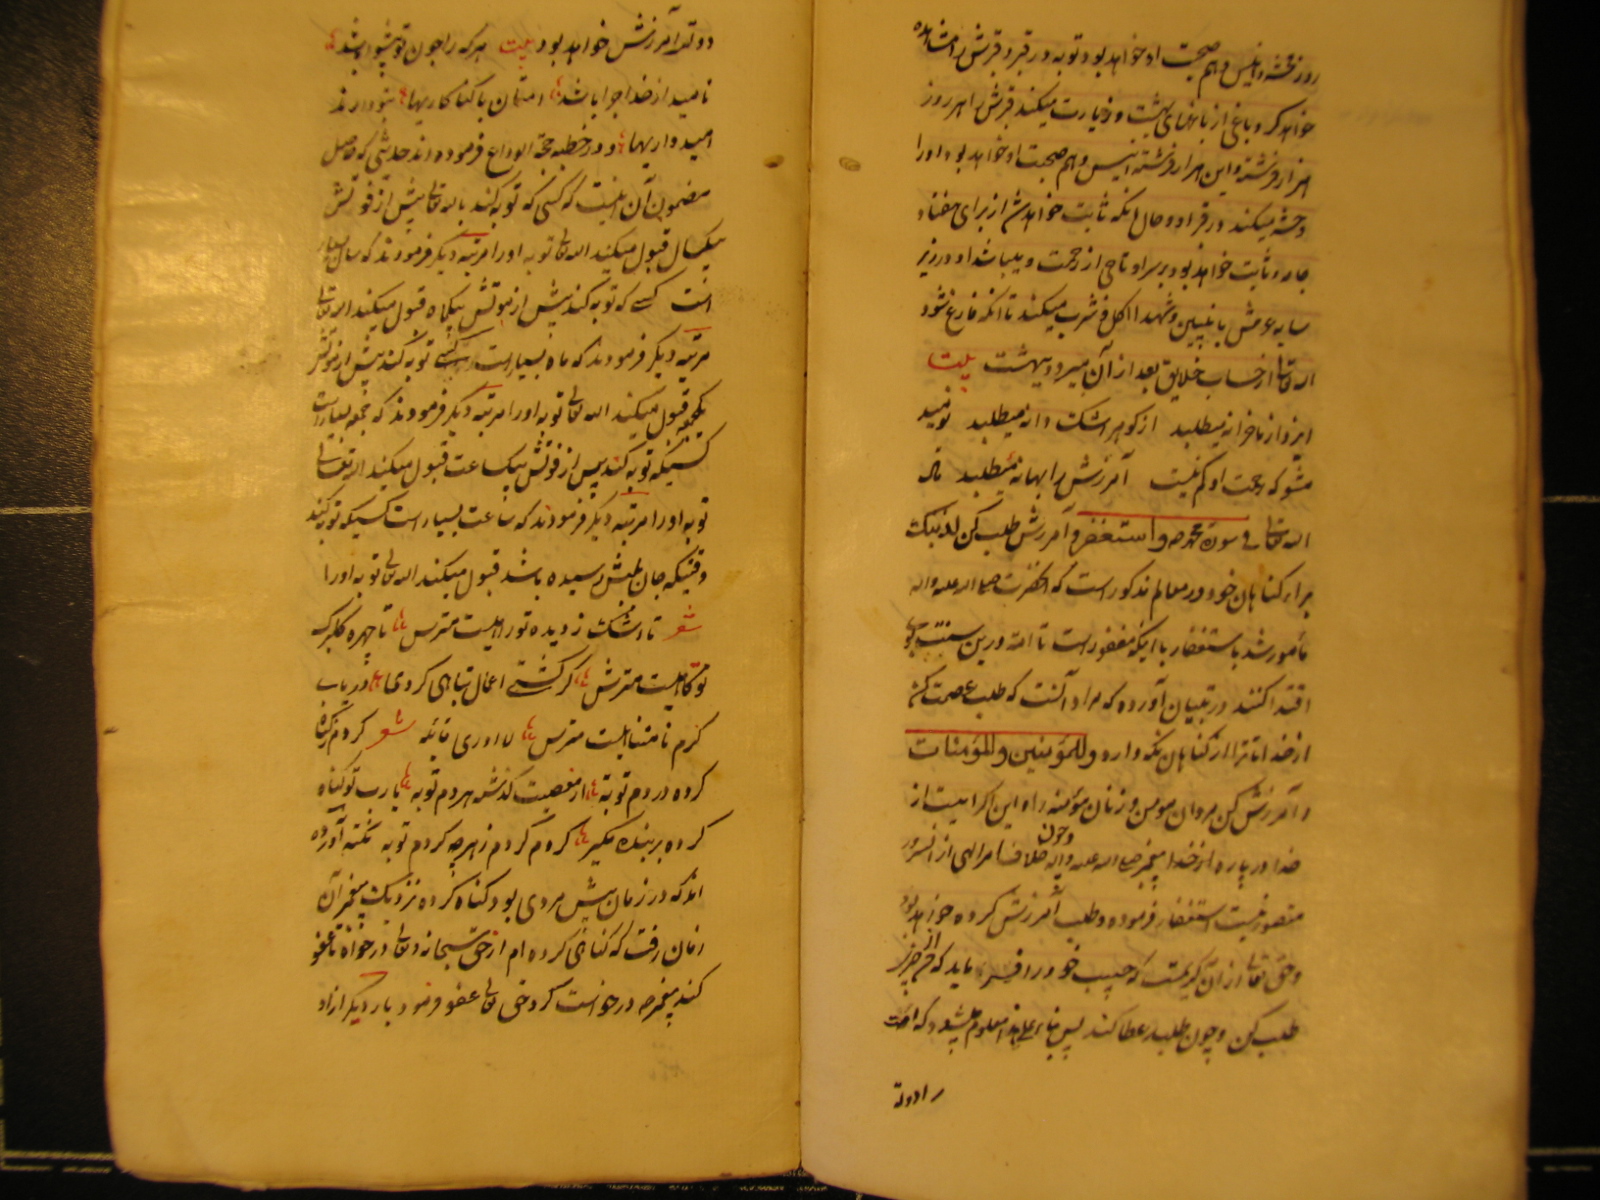 روز فرشته و انیس و هم صحبت او خواهد بود توبه در قبر و قبرش را مشاهده
خواهد کرد باغی از باغهای بهشت و زیارت میکنند قبرش را هر روز
هزار فرشته و این هزار فرشته انیس و هم صحبت او خواهد بود و او را
وحشه میکنند در قبر او و حال آنکه ثابت خواهد شد از برای هفتاد
جامه و ثابت خواهد بود بر سر او تاجی از رحمت و میباشد او در زیر
سایه عرش با نبیین و شهدا اکل و شرب میکنند تا آنکه فارغ شود
الله تعالی از حساب خلایق بعد از آن میرود بهشت بیت
ایزد از ناخرانه میطلبد از گوهر اشک دانه میطلبد نومید
مشو که رحمت او کم نیست آمرزش را بهانه میطلبد قال
الله تعالی فی سورة محمد ص واستغفر و آمرزش طلب کن لذنبک
برای گناهان خود و در معالم مذکور است که آنحضرت صلی الله علیه واله
مأمور شد باستغفار با اینکه مغفور است تا امت درین سنت باو
اقتدا کنند در تبیان آورده که مراد آنست که طلب عصمت کن
از خدا تا ترا از گناهان نگه دارد وللمؤمنین والمؤمنات
و آمرزش کن مردان مومن و زنان مؤمنه را و این اکرامیست از
خدا در باره امت پیغمبر صلی الله علیه واله و چون خلاف امر الهی از انسرور
متصور نیست استغفار فرموده و طلب آمرزش کرده خواهد بود
و حق تعالی از آن کریمست که حبیب خود را فرماید که از من چیزی
طلب کن و چون طلبد عطا نکند پس بناء علی هذا معلوم میشود که امت
را دولة
دولت آمرزش خواهد بود بیت هر که را چون تو پیشوا باشد
نامید از خدا چرا باشد امتان با گناکاریها بتو دارند
امیدواریها و در خطبه حجة الوداع فرموده اند حدیثی که حاصل
مضمون آن اینست که کسی که توبه کند بالله تعالی پیش از فوتش
بیکسال قبول میکند الله تعالی توبه او را مرتبه دیگر فرمودند که سال بسیار
است کسی که توبه کند پیش از موتش بیکماه قبول میکند الله تعالی
مرتبه دیگر فرمودند که ماه بسیار است کسی توبه کند پیش از موتش
بکجمعه قبول میکند الله تعالی توبه او را مرتبه دیگر فرمودند که جمعه بسیار است
کسیکه توبه کند پیش از فوتش بیک ساعت قبول میکند الله تعالی
توبه او را مرتبه دیگر فرمودند که ساعت بسیار است کسیکه توبه کند
وقتیکه جان بلبش رسیده باشد قبول میکند الله تعالی توبه او را
شعر تا اشک ز دیده تو راهیست مترس تا چهره گلبرگ
تو کاهیست مترس گر کشتی اعمال تباهی کردی دریای
کرم نامتناهیست مترس لا ادری قائله شعر کردم گنه
کرده در دم توبه از معصیت گذشته هر دم توبه یا رب تو گناه
کرده بر بنده مگیر کردم کردم ز هر چه کردم توبه نکته آورده
اند که در زمان پیش مردی بود گناه کرده نزدیک پیغمبر آن
زمان رفت که گناهی کرده ام از حق سبحانه و تعالی درخواه تا عفو
کند پیغمبر درخواست کرد حق تعالی عفو فرمود بار دیگر از او